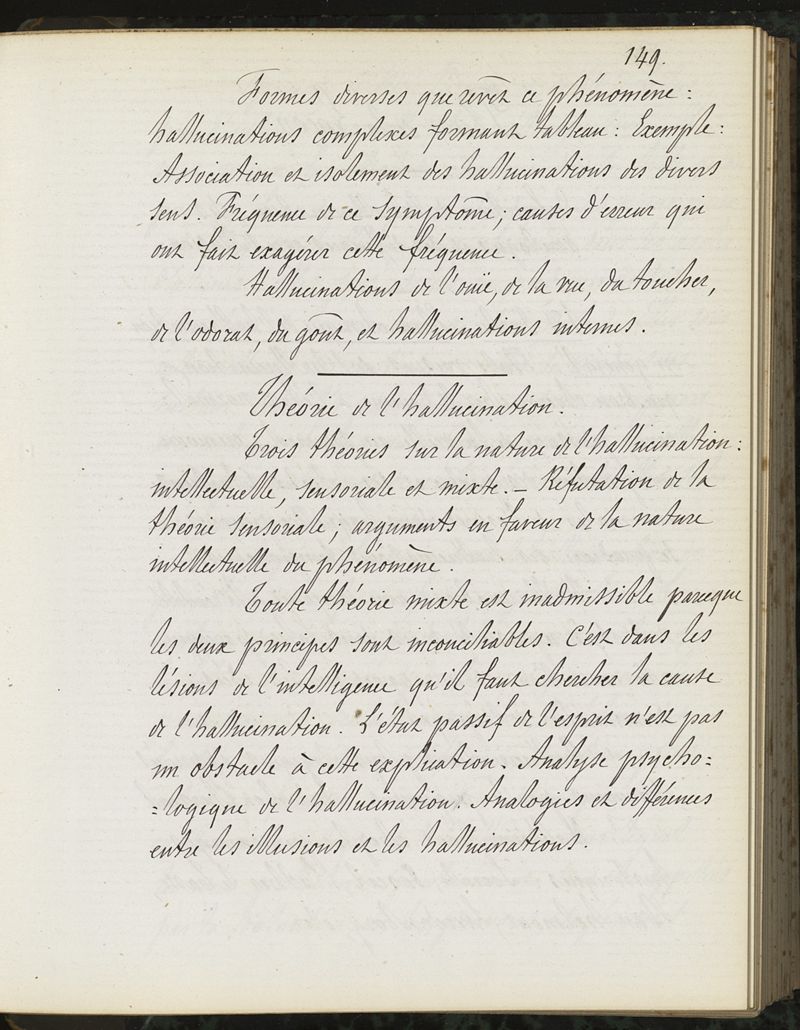 149.
Formes diverses que revêt ce phénomène :
hallucinations complexes formant tableau : Exemple :
Association et isolement des hallucinations des divers
sens. Fréquence de ce symptôme ; causes d'erreur qui
ont fait exagérer cette fréquence.
Hallucinations de l'ouïe, de la vue, du toucher,
de l'odorat, du goût, et hallucinations internes.
Théorie de l'hallucination.
Trois théories sur la nature de l'hallucination :
intellectuelle, sensoriale et mixte. — Réfutation de la
théorie sensoriale ; arguments en faveur de la nature
intellectuelle du phénomène.
Toute théorie mixte est inadmissible parceque
les deux principes sont inconciliables. C'est dans les
lésions de l'intelligence qu'il faut chercher la cause
de l'hallucination. L'état passif de l'esprit n'est pas
un obstacle à cette explication. Analyse psycho=
=logique de l'hallucination. Analogies et différences
entre les illusions et les hallucinations.